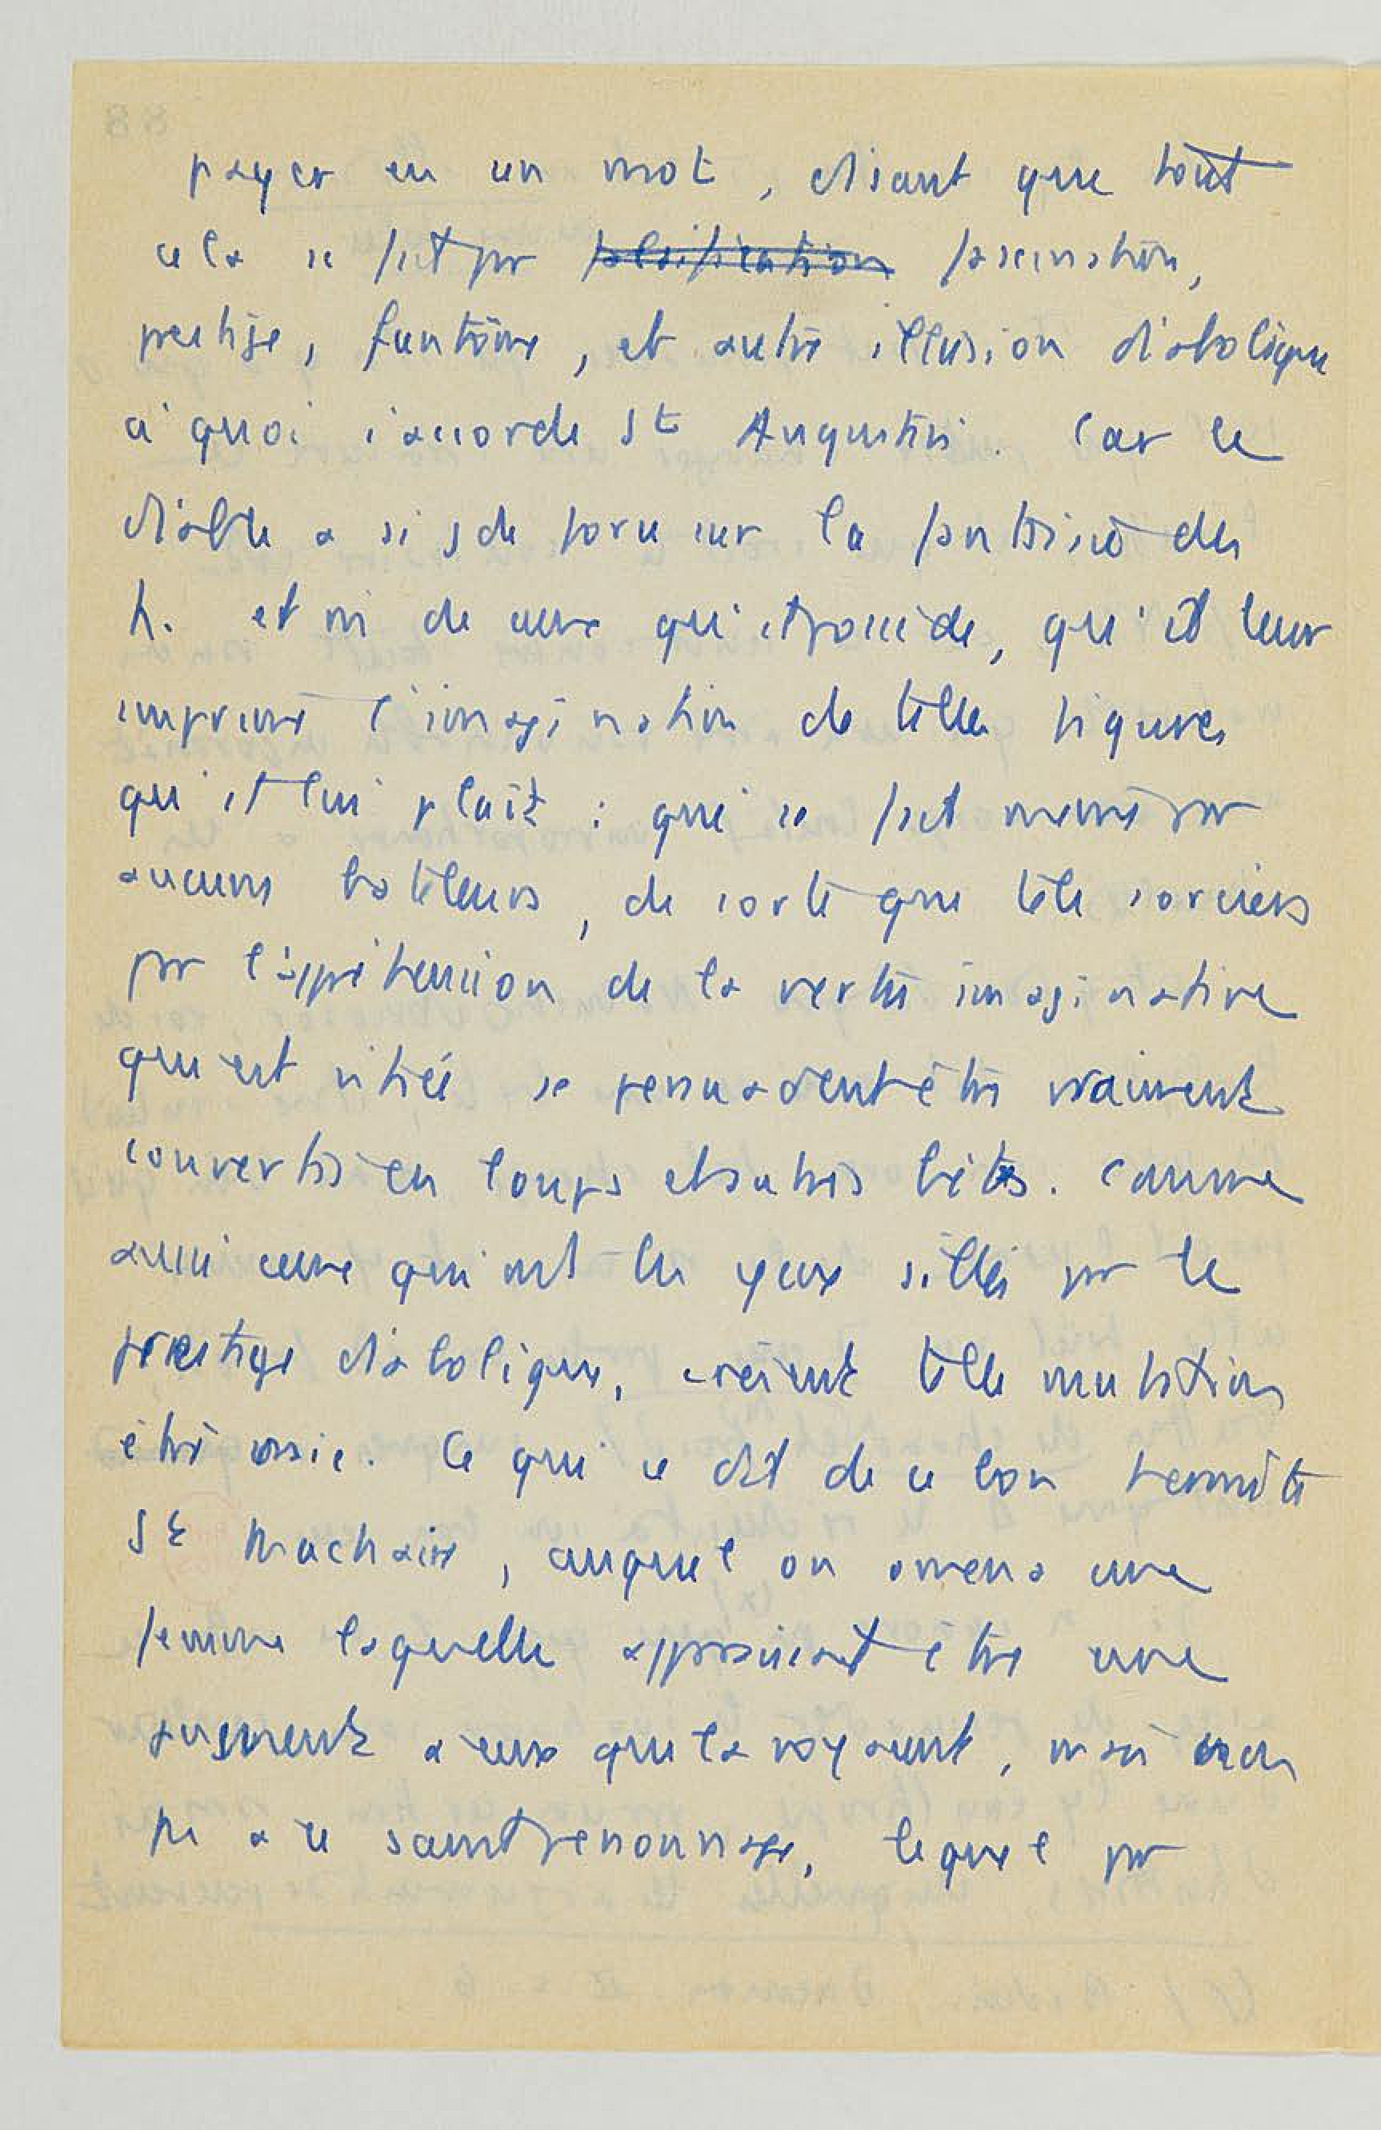 payer en un mot, disant que tout
cela se fait par falsification fascination,
prestige, fantôme, et autre illusion diabolique
à quoi s'accorde St Augustin. Car le
diable a si gde force sur la fantaisie des
h. et mt de ceux qu'il possède, qu'il leur
imprime l'imagination de telles figures
qu'il lui plaît : qui se fait même par
aucuns bateleurs, de sorte que tels sorciers
par l'appréhension de la vertu imaginative
qui est vitiée se persuadent être vraiment
convertis en loups et autres bêtes. Comme
aussi ceux qui ont les yeux sillés par le
prestige diabolique, croient telle mutation
être vraie. Ce qui se dit de ce bon hermite
St Machaire, auquel on amena une
femme laquelle apparaissait être une
jument à ceux qui la voyaient, mais non
pas à ce saint personnage, lequel par
88